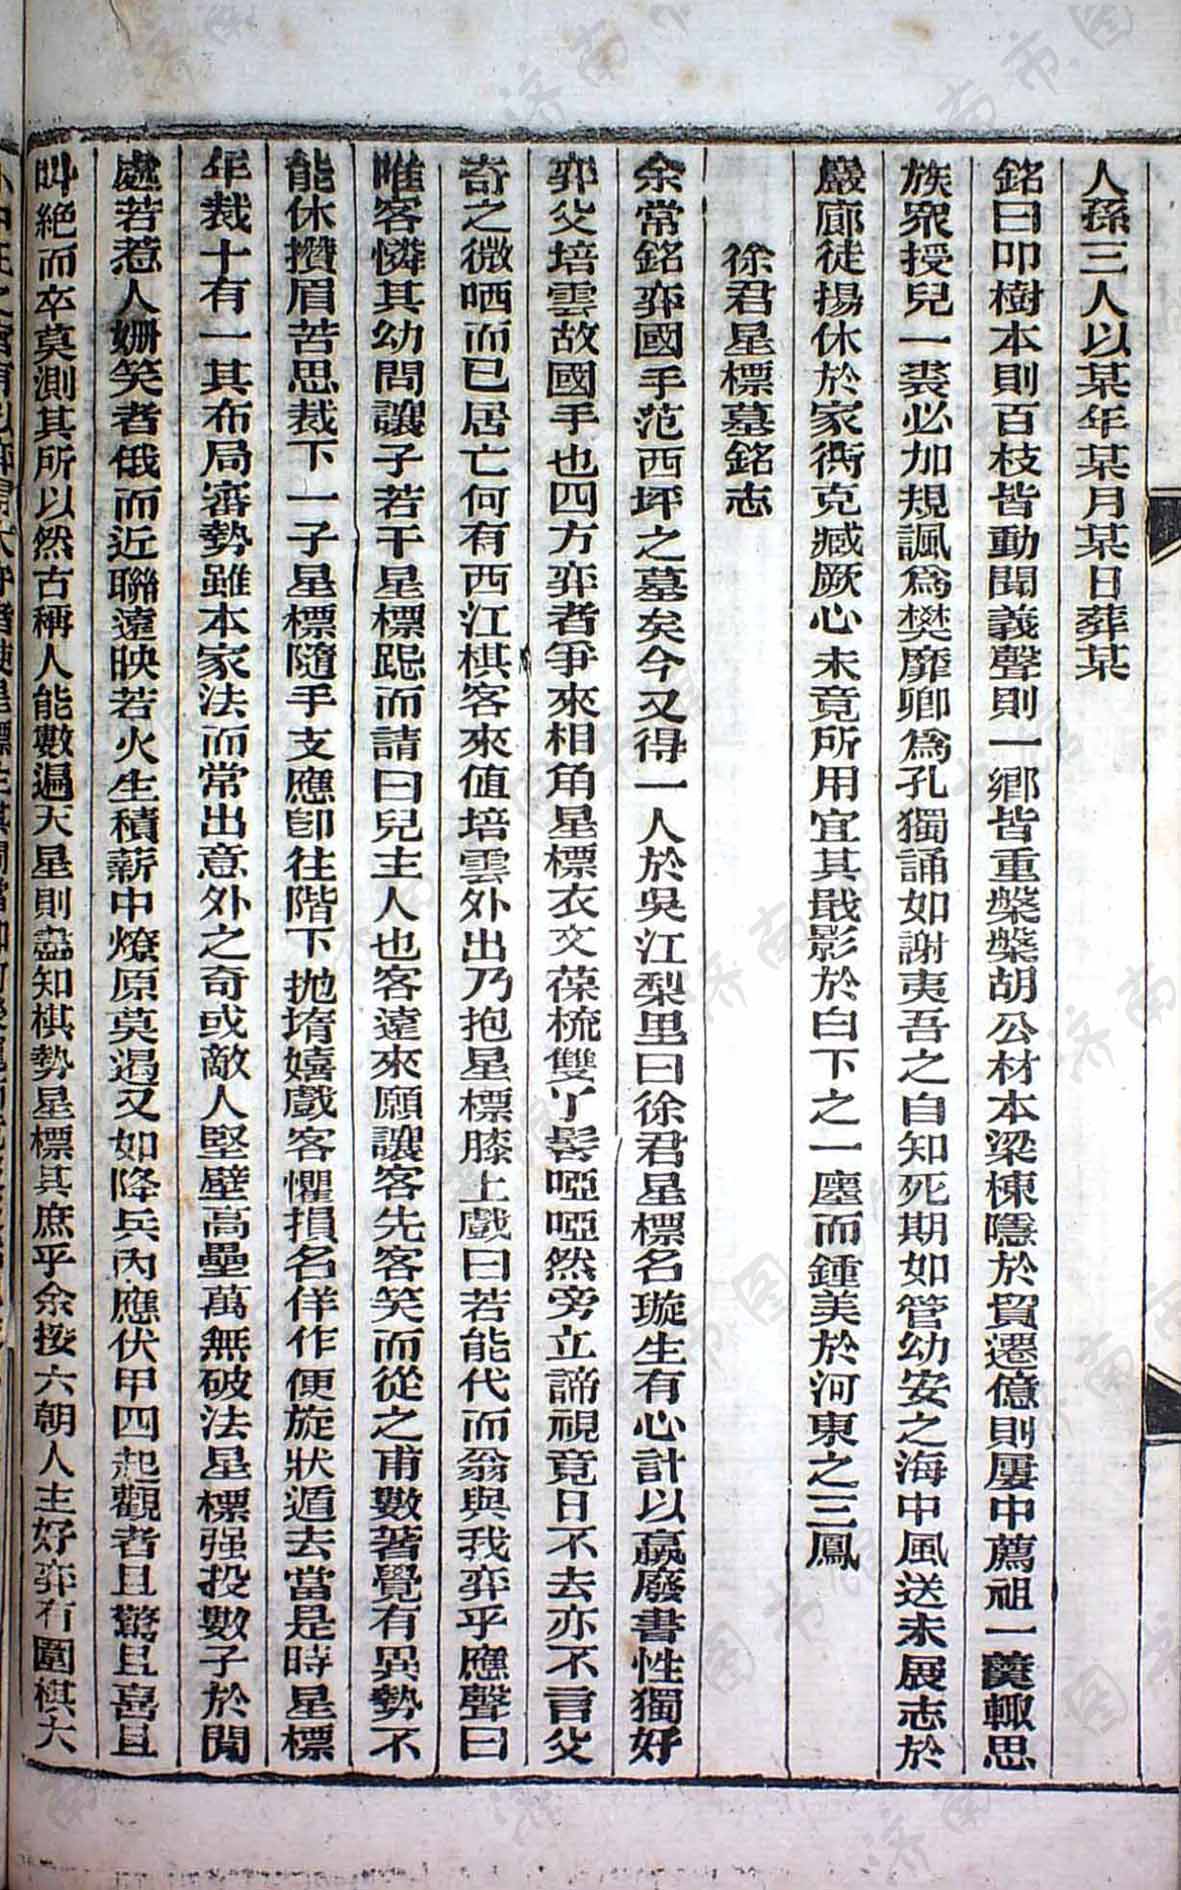 人孫三人以某年某月某日葬某
銘曰叩樹本則百枝皆動聞義聲則一鄉皆重槃槃胡公材本梁棟隱於貿遷億則屢中薦祖一羹輒思
族衆授兒一裘必加規諷爲樊靡卿爲孔獨誦如謝夷吾之自知死期如管幼安之海中風送未展志於
巖廊徒揚休於家衖克臧厥心未竟所用宜其戢影於白下之一廛而鍾美於河東之三鳳
徐君星標墓銘志
余常銘弈國手范西坪之墓矣今又得一人於吳江梨里曰徐君星標名璇生有心計以羸廢書性獨好
弈父培雲故國手也四方弈者爭來相角星標衣文葆梳雙丫髻啞啞然旁立諦視竟日不去亦不言父
奇之微哂而已居亡何有西江棋客來值培雲外出乃抱星標膝上戲曰若能代而翁與我弈乎應聲曰
唯客憐其幼問讓子若干星標跽而請曰兒主人也客遠來願讓客先客笑而從之甫數著覺有異勢不
能休攢眉苦思裁下一子星標隨手支應卽往階下拋堶嬉戲客懼損名佯作便旋狀遁去當是時星標
年裁十有一其布局審勢雖本家法而常出意外之奇或敵人堅壁高壘萬無破法星標强投數子於閒
處若惹人姍笑者俄而近聯遠映若火生積薪中燎原莫遏又如降兵內應伏甲四起觀者且驚且喜且
叫絕而卒莫測其所以然古稱人能數遍天星則盡知棋勢星標其庶乎余按六朝人主好弈有圍棋大